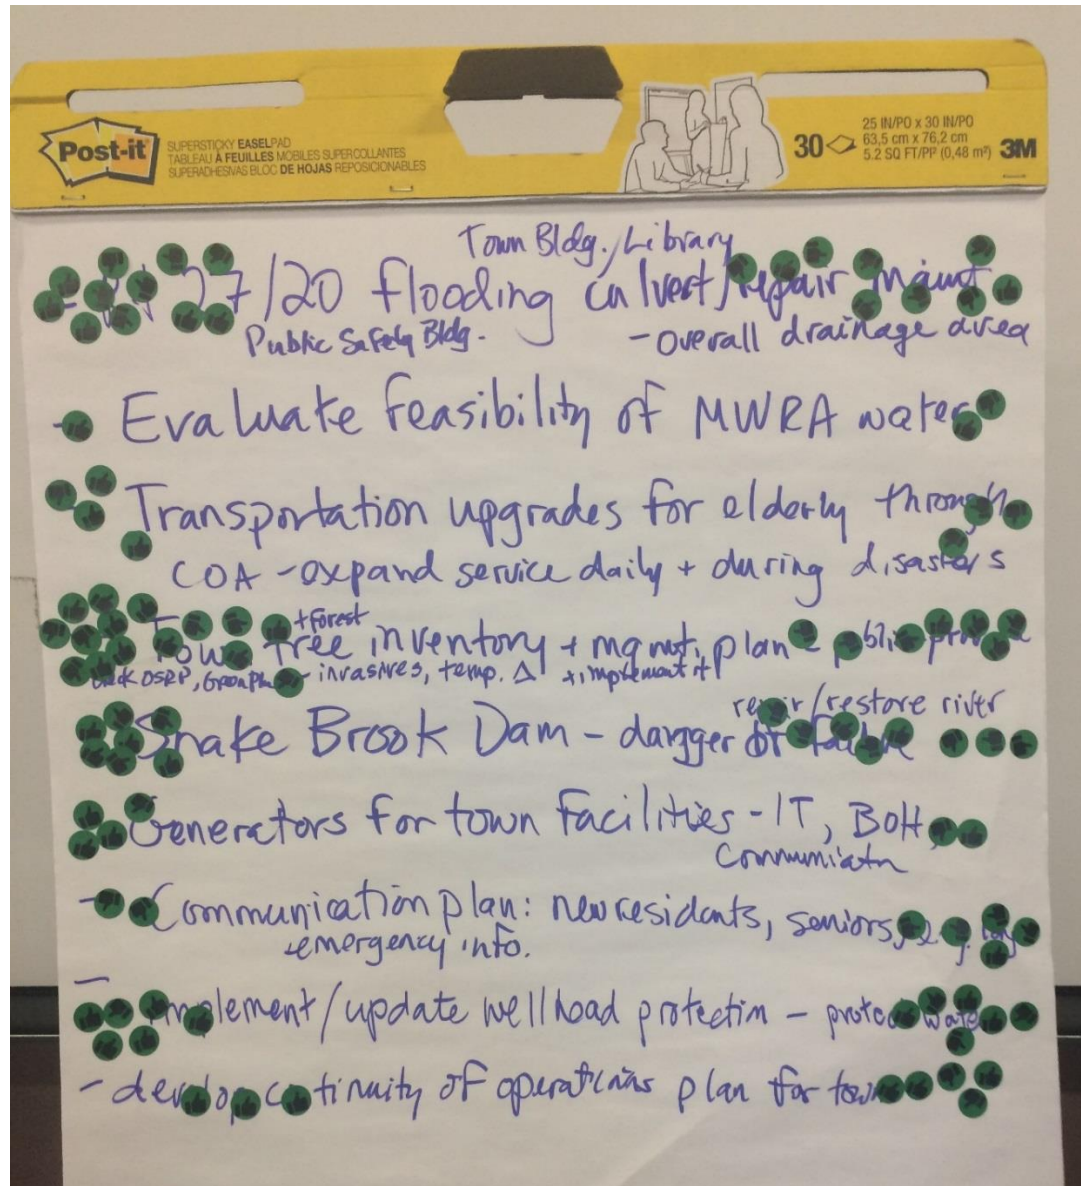 Post-it
SUPERSTICKY EASEL PAD
TABLEAU À FEUILLES MOBILES SUPERCOLLANTES
SUPERADHESIVAS BLOC DE HOJAS REPOSICIONABLES
30
25 IN/PO x 30 IN/PO
63,5 cm x 76,2 cm
5.2 SQ FT/PP (0,48 m²)
3M
Town Bldg./Library
27/20 flooding culvert/repair Maint
Public Safety Bldg. - overall drainage area
- Evaluate feasibility of MWRA water
Transportation upgrades for elderly through
COA - expand service daily + during disasters
+ forest
Town Tree inventory + mgmt. plan - public
OSRP, - invasives, temp. Δ + implement it
repair/restore river
Snake Brook Dam - dangger of failure
Generators for town facilities - IT, BOH,
Communiatn
- Communication plan: new residents, seniors,
emergency info.
- Implement/update wellhead protection - protect water
- develop continuity of operations plan for town